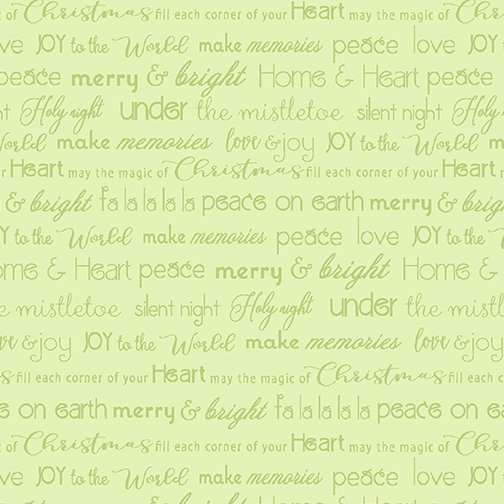 of Christmas fill each corner of your Heart may the magic of Christmas
love JOY to the World make memories peace love JOY to the
peace merry & bright Home & Heart peace
silent night Holy night under the mistletoe silent night Holy
World make memories love & joy JOY to the World m
your Heart may the magic of Christmas fill each corner of your Heart m
& bright fa la la la la peace on earth merry & brig
JOY to the World make memories peace love JOY to the World
Home & Heart peace merry & bright Home &
the mistletoe silent night Holy night under the mis
love & joy JOY to the World make memories love & joy
Christmas fill each corner of your Heart may the magic of Christmas fill each corn
peace on earth merry & bright fa la la la la peace on ea
of Christmas fill each corner of your Heart may the magic of Christmas
love JOY to the World make memories peace love JOY to the
peace merry & bright Home & Heart peace